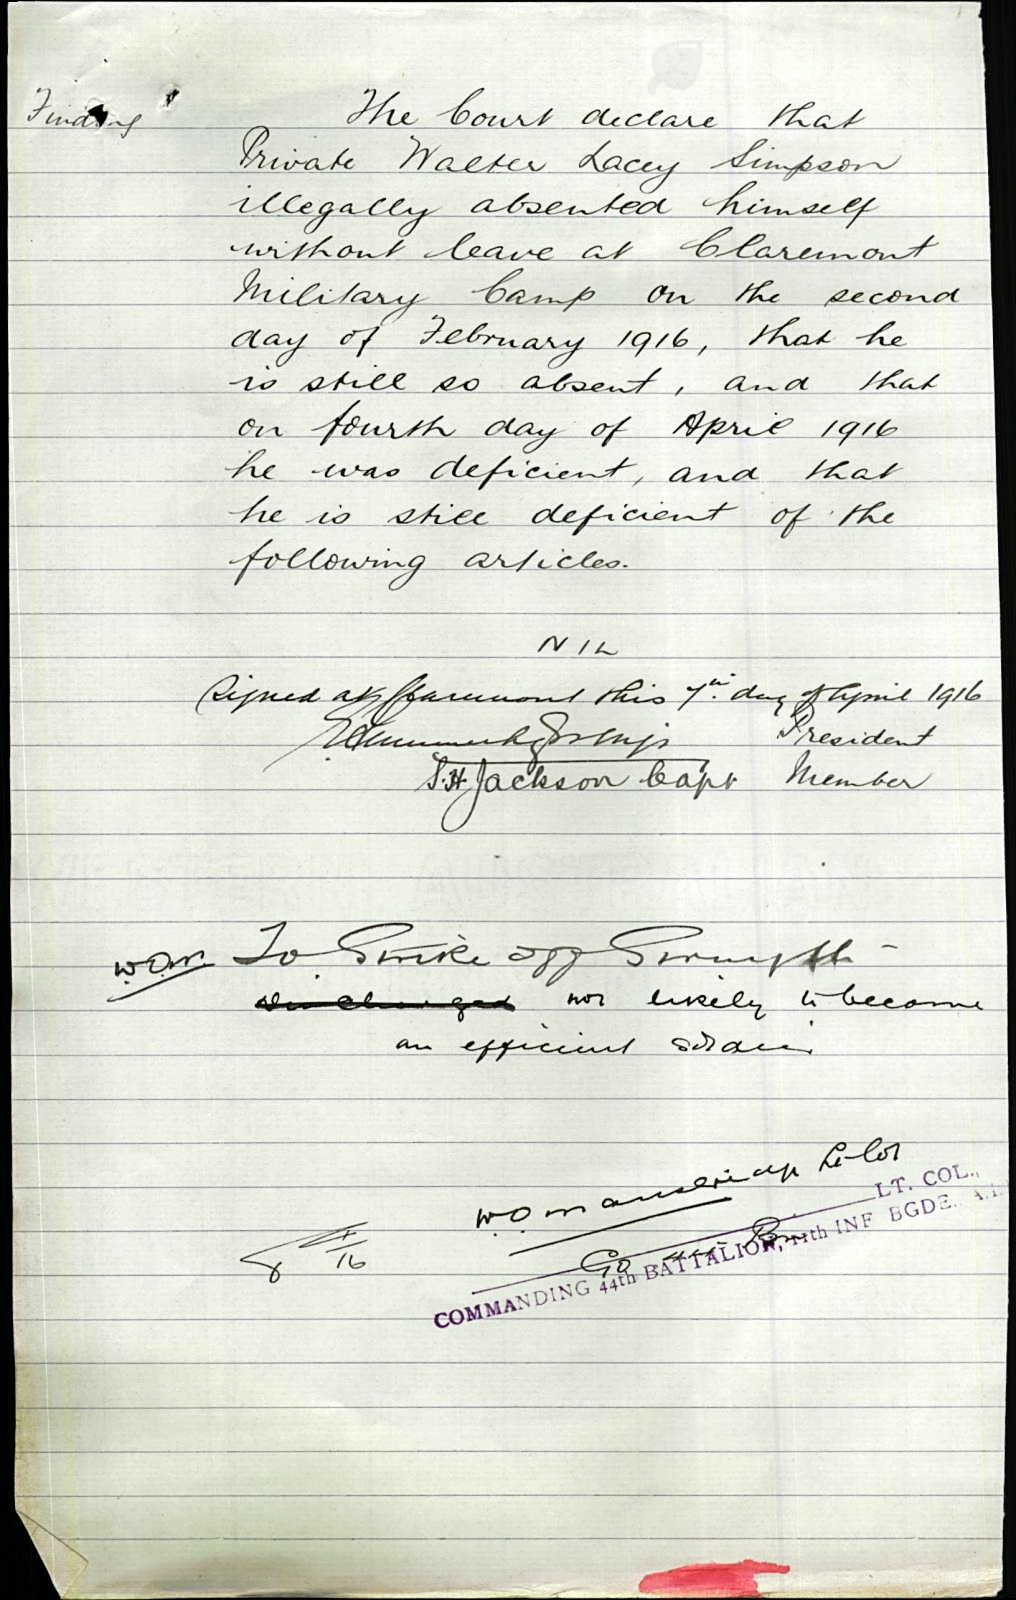 Finding
The Court declare that
Private Walter Lacey Simpson
illegally absented himself
without leave at Claremont
Military Camp on the second
day of February 1916, that he
is still so absent, and that
on fourth day of April 1916
he was deficient, and that
he is still deficient of the
following articles.
NIL
Signed at Claremont this 7th day of April 1916
President
S.H. Jackson Capt Member
W.O.M. To Strike off Strength
not likely to become
an efficient
W.O. Mansbridge Lt-Col
LT. COL.,
COMMANDING 44th BATTALION, 11th INF BGDE. A.I.
8/4/16